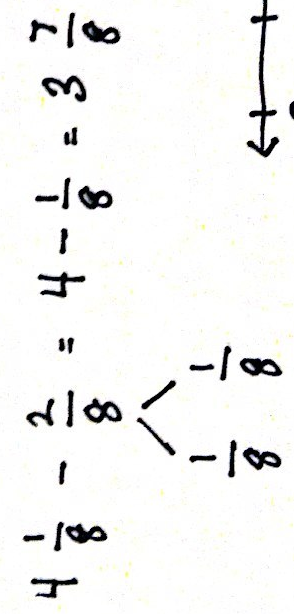 4 1/8 - 2/8 = 4 - 1/8 = 3 7/8
1/8 1/8